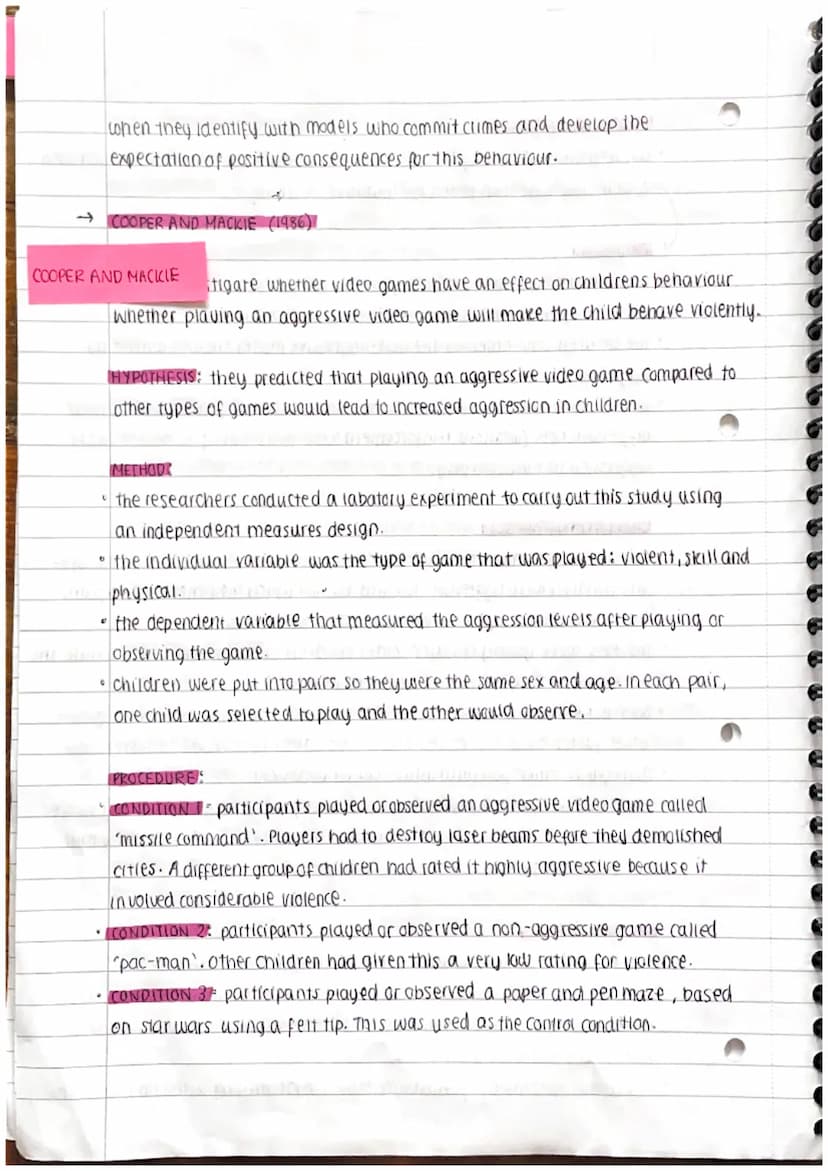 when they identify with models who commit crimes and develop the
expectation of positive consequences for this behaviour.
→ COOPER AND MACKIE (1986)
COOPER AND MACKIE
tigare whether video games have an effect on childrens behaviour
whether playing an aggressive video game will make the child behave violently.
HYPOTHESIS: they predicted that playing an aggressive video game compared to
other types of games would lead to increased aggression in children.
METHOD:
• the researchers conducted a labatory experiment to carry out this study using
an independent measures design.
• the individual variable was the type of game that was played: violent, skill and
physical.
• the dependent variable that measured the aggression levels after playing or
observing the game.
• children were put into pairs so they were the same sex and age. In each pair,
one child was selected to play and the other would observe.
PROCEDURE:
• CONDITION 1- participants played or observed an aggressive video game called
'missile command'. Players had to destroy laser beams before they demolished
cities. A different group of children had rated it highly aggressive because it
involved considerable violence.
• CONDITION 2: participants played or observed a non-aggressive game called
'pac-man'. Other children had given this a very low rating for violence.
• CONDITION 3- participants played or observed a paper and pen maze, based
on star wars using a felt tip. This was used as the control condition.